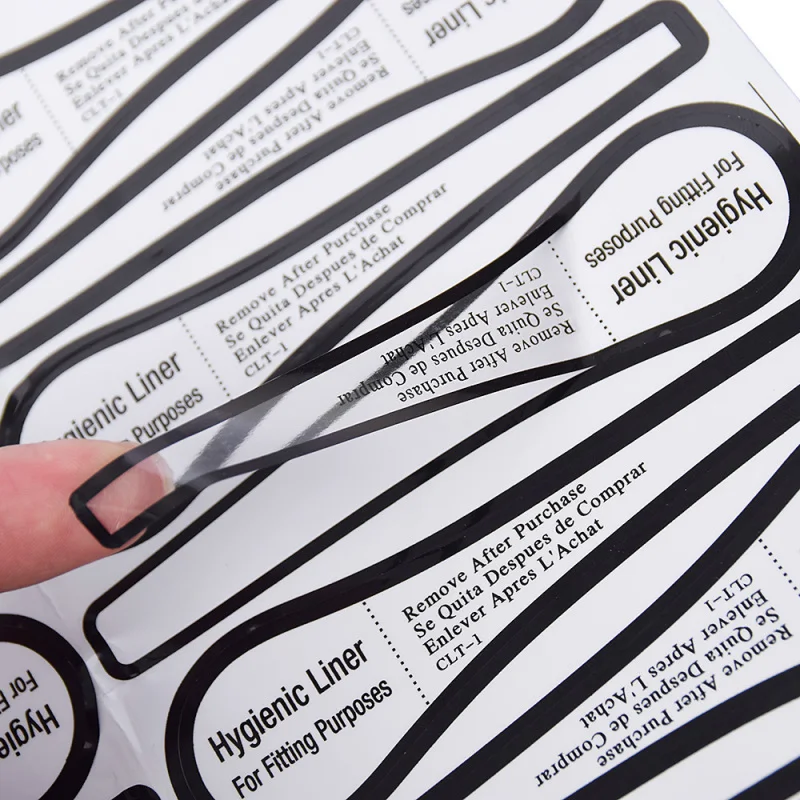 Remove After Purchase
Se Quita Despues de
Enlever Apres L'Achat
CLT-1
Liner
CLT-1
Enlever Apres L'Achat
Se Quita Despues de Comprar
Remove After Purchase
Hygienic Liner
For Fitting Purposes
CLT-1
Enlever Apres L'Achat
Se Quita Despues de Comprar
Remove After Purchase
Remove After Purchase
Se Quita Despues de Comprar
Enlever Apres L'Achat
CLT-1
Hygienic Liner
Purposes
Remove After Purchase
Se Quita Despues de Comprar
Enlever Apres L'Achat
CLT-1
Hygienic Liner
For Fitting Purposes
CLT-1
Enlever Apres L'Achat
Se Quita Despues de Comprar
Remove After Purchase